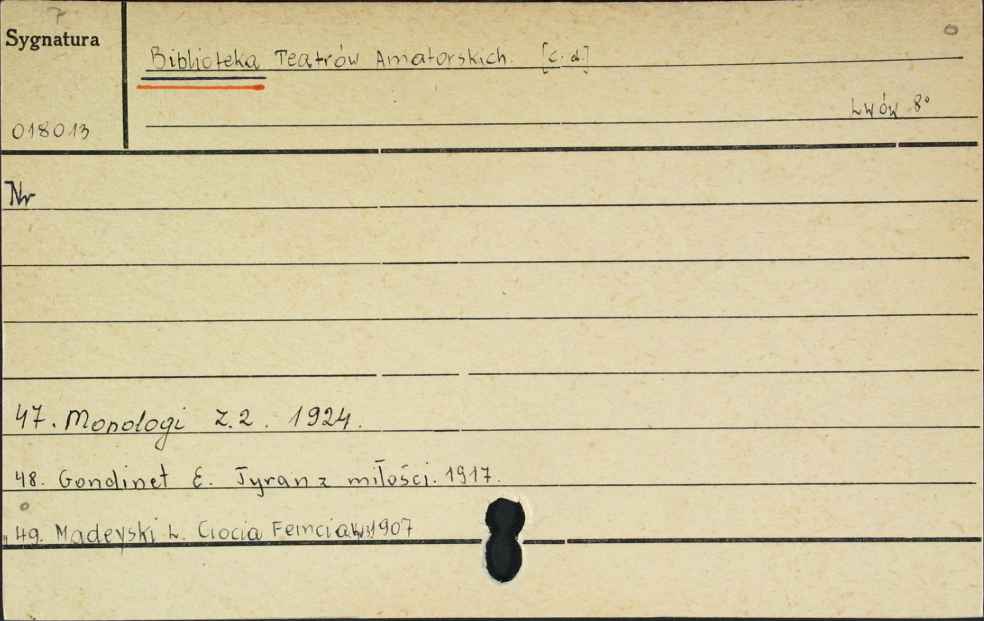 7
Sygnatura
Biblioteka Teatrów Amatorskich. [c.d.]
Lwów 8°
018013
Nr
47. Monologi Z.2. 1924.
48. Gondinet E. Tyran z miłości. 1917.
49. Madeyski L. Ciocia Femcia 1907